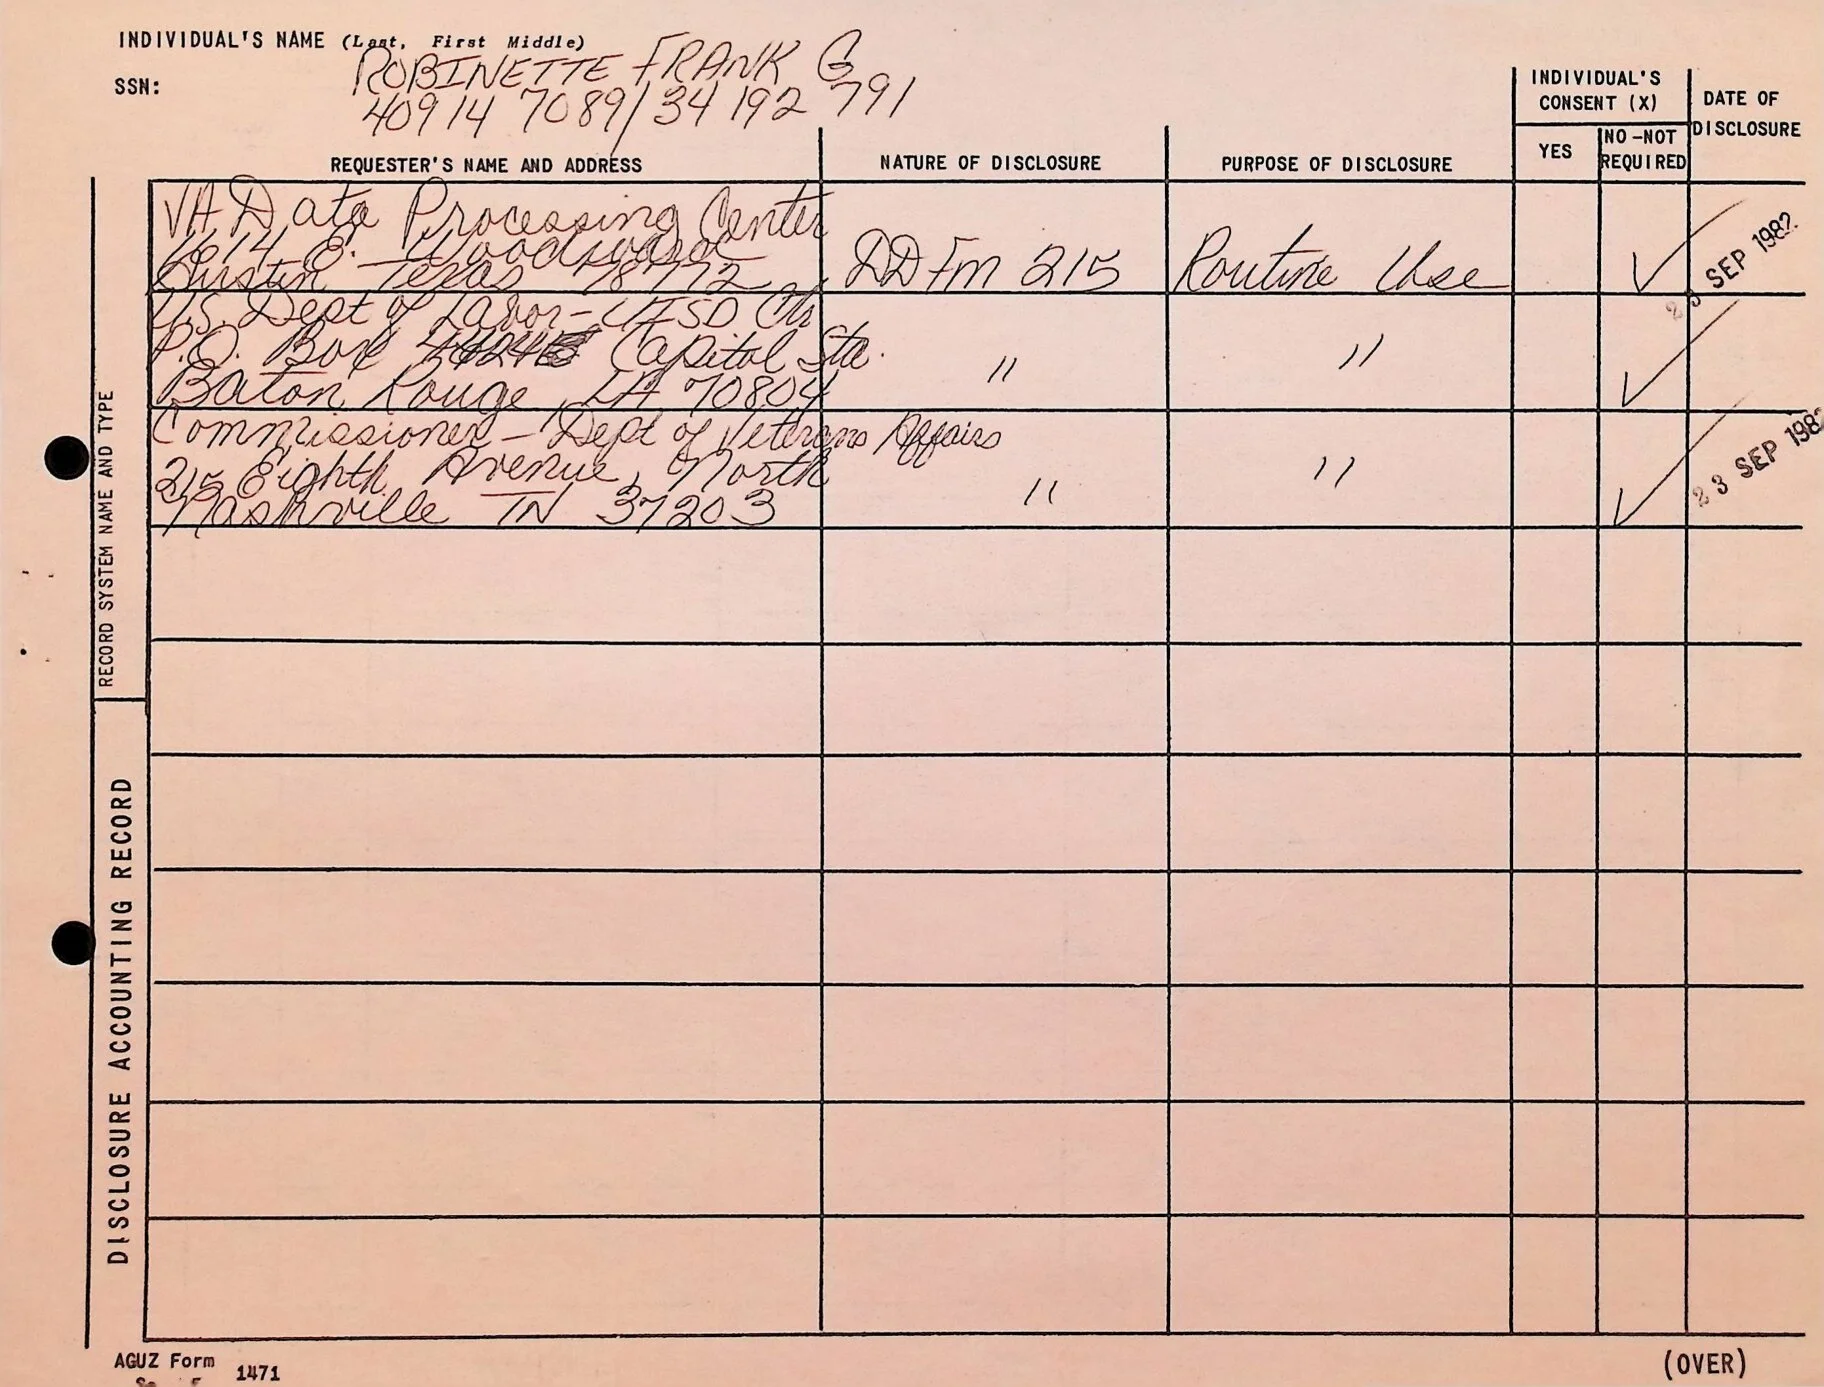 INDIVIDUAL'S NAME (Last, First Middle)
ROBINETTE FRANK G
SSN:
409 14 7089/34 192 791
INDIVIDUAL'S CONSENT (X)
DATE OF DISCLOSURE
REQUESTER'S NAME AND ADDRESS
NATURE OF DISCLOSURE
PURPOSE OF DISCLOSURE
YES
NO-NOT REQUIRED
VA Data Processing Center
1614 E. Woodward
Austin Texas 78772
DD Fm 215
Routine Use
✓
23 SEP 1982
U.S. Dept of Labor-
P.O. Box Capitol Sta.
Baton Rouge, LA 70804
"
"
✓
Commissioner - Dept of Veterans Affairs
215 Eighth Avenue, North
Nashville TN 37203
"
"
✓
23 SEP 198
RECORD SYSTEM NAME AND TYPE
DISCLOSURE ACCOUNTING RECORD
AGUZ Form 1471
(OVER)